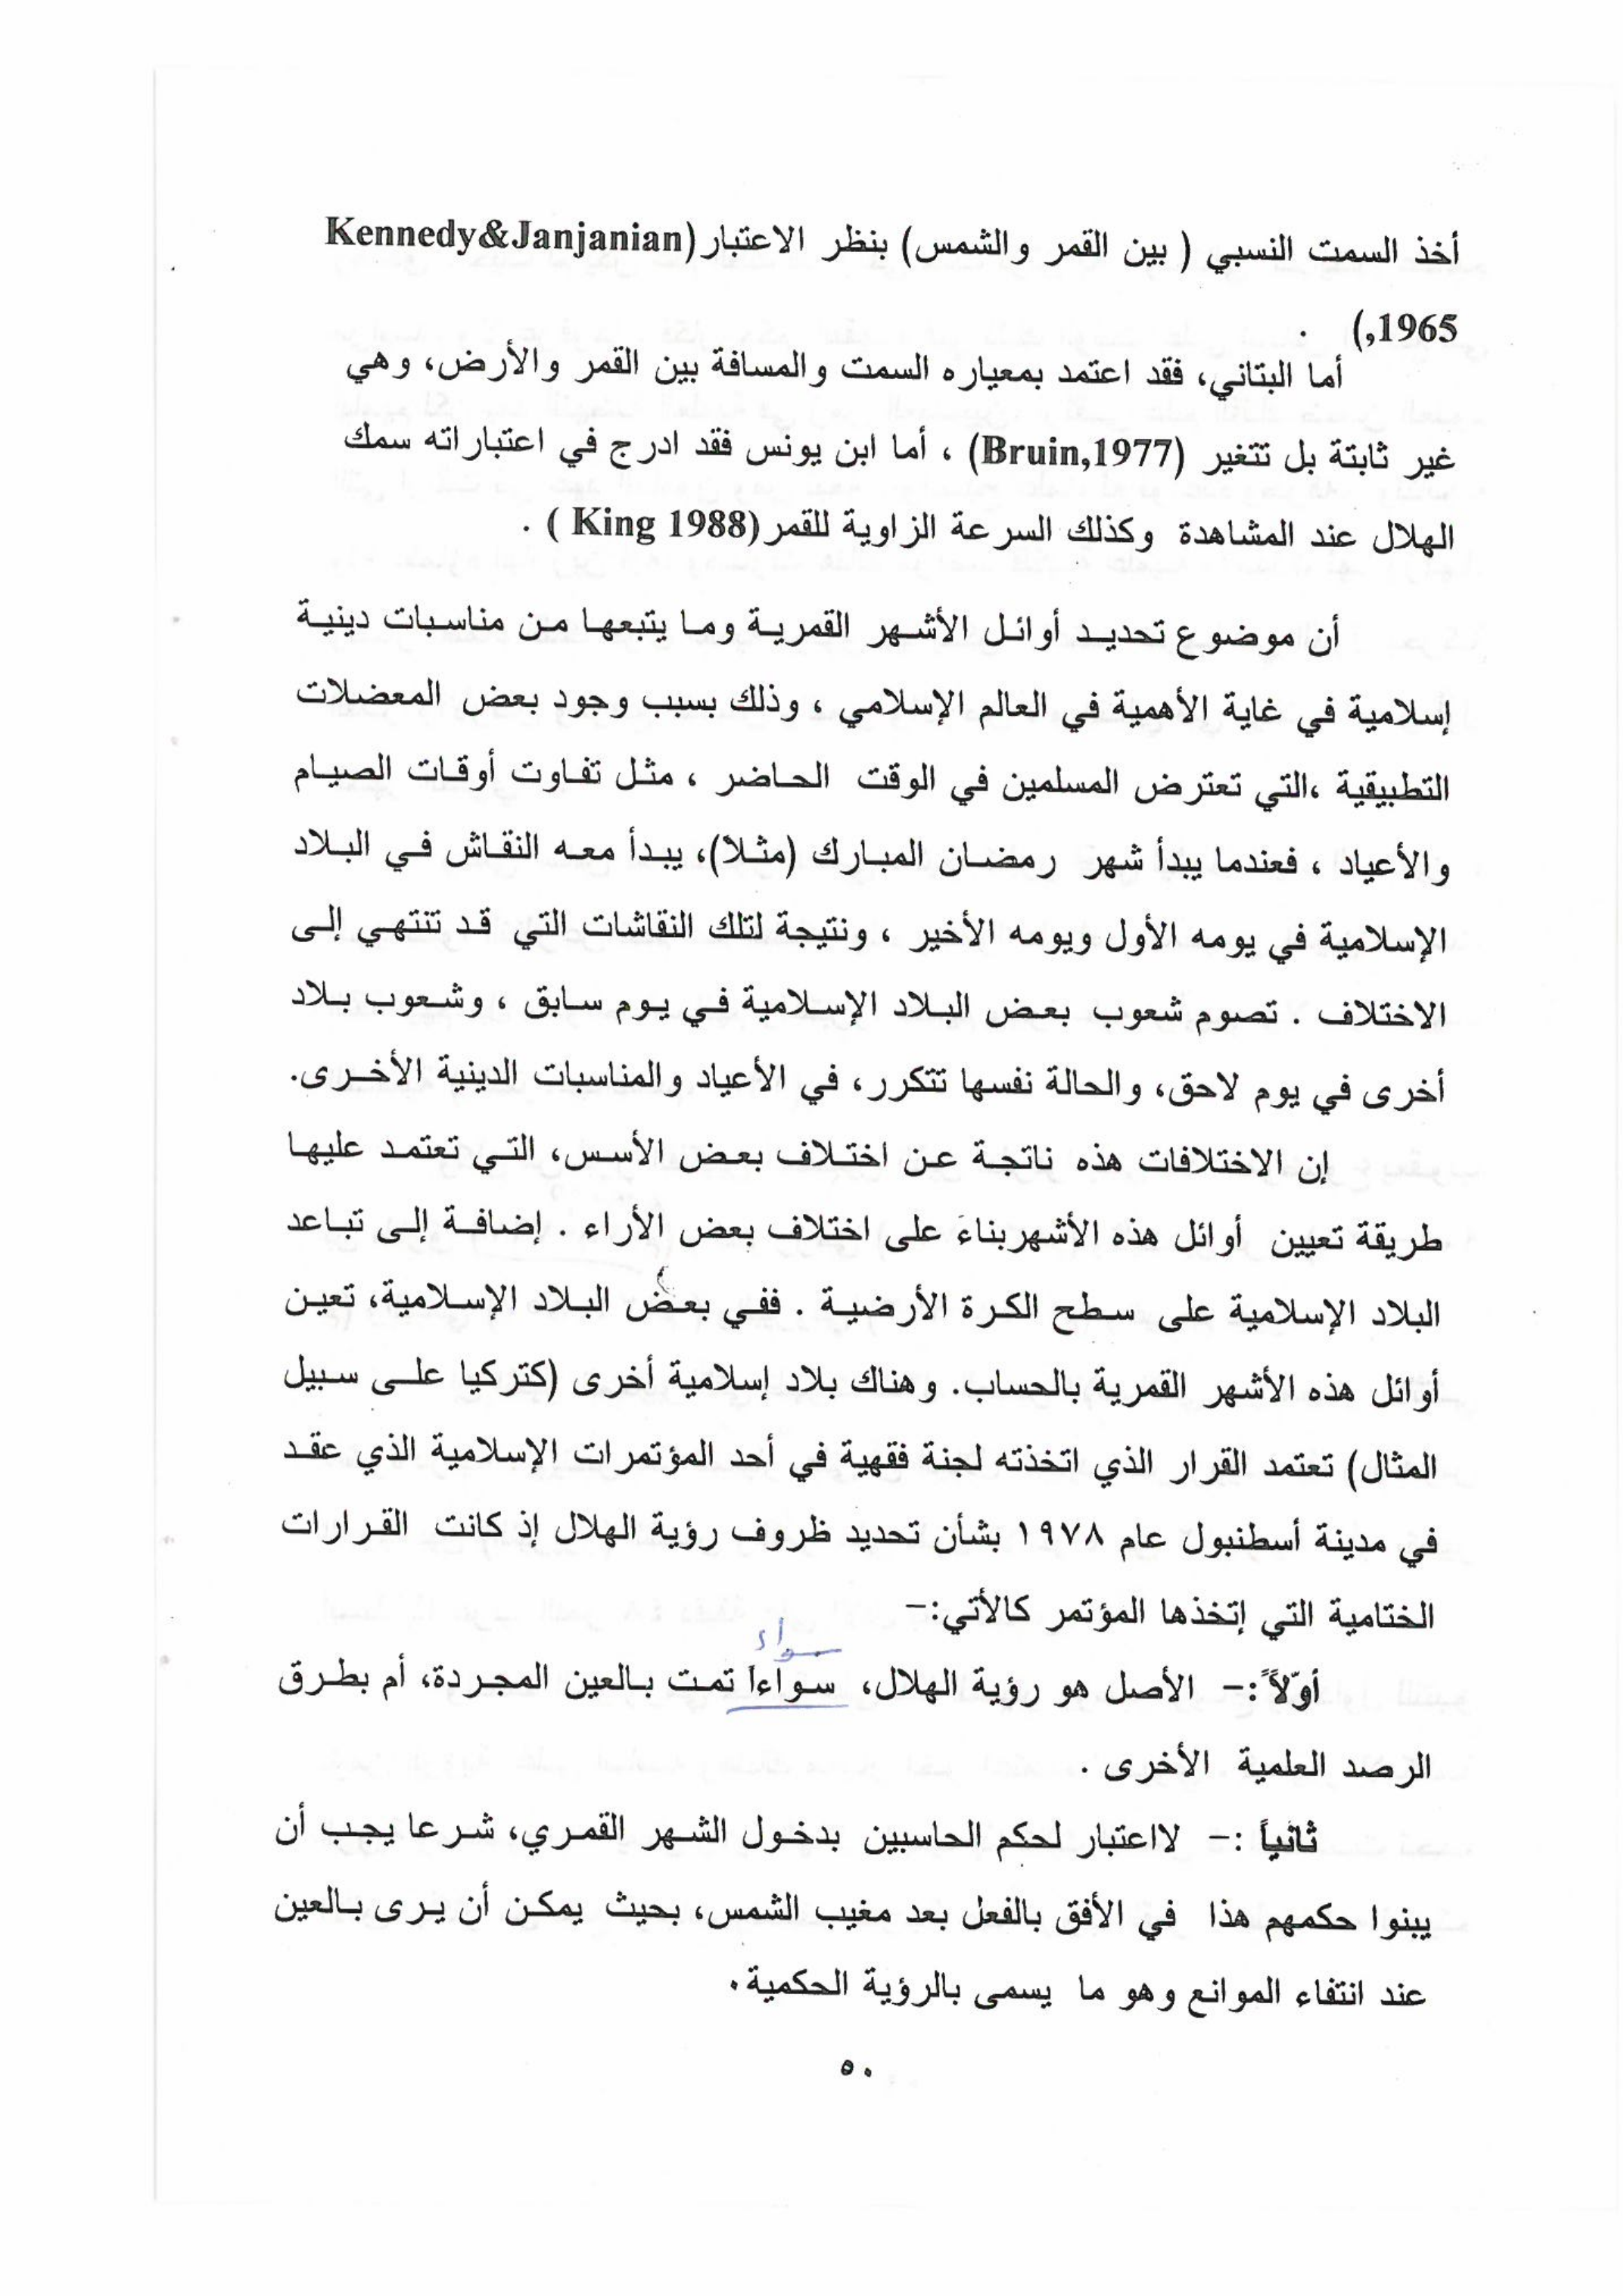 أخذ السمت النسبي ( بين القمر والشمس) بنظر الاعتبار (Kennedy&Janjanian
,1965) .
أما البتاني، فقد اعتمد بمعياره السمت والمسافة بين القمر والأرض، وهي
غير ثابتة بل تتغير (Bruin,1977) ، أما ابن يونس فقد ادرج في اعتباراته سمك
الهلال عند المشاهدة وكذلك السرعة الزاوية للقمر (King 1988 ) .
أن موضوع تحديد أوائل الأشهر القمرية وما يتبعها من مناسبات دينية
إسلامية في غاية الأهمية في العالم الإسلامي ، وذلك بسبب وجود بعض المعضلات
التطبيقية ،التي تعترض المسلمين في الوقت الحاضر ، مثل تفاوت أوقات الصيام
والأعياد ، فعندما يبدأ شهر رمضان المبارك (مثلاً)، يبدأ معه النقاش في البلاد
الإسلامية في يومه الأول ويومه الأخير ، ونتيجة لتلك النقاشات التي قد تنتهي إلى
الاختلاف . تصوم شعوب بعض البلاد الإسلامية في يوم سابق ، وشعوب بلاد
أخرى في يوم لاحق، والحالة نفسها تتكرر، في الأعياد والمناسبات الدينية الأخرى.
إن الاختلافات هذه ناتجة عن اختلاف بعض الأسس، التي تعتمد عليها
طريقة تعيين أوائل هذه الأشهربناءَ على اختلاف بعض الأراء . إضافة إلى تباعد
البلاد الإسلامية على سطح الكرة الأرضية . ففي بعض البلاد الإسلامية، تعين
أوائل هذه الأشهر القمرية بالحساب. وهناك بلاد إسلامية أخرى (كتركيا على سبيل
المثال) تعتمد القرار الذي اتخذته لجنة فقهية في أحد المؤتمرات الإسلامية الذي عقد
في مدينة أسطنبول عام ١٩٧٨ بشأن تحديد ظروف رؤية الهلال إذ كانت القرارات
الختامية التي إتخذها المؤتمر كالأتي:–
سواء
أوّلاً :– الأصل هو رؤية الهلال، سواءا تمت بالعين المجردة، أم بطرق
الرصد العلمية الأخرى .
ثانياً :– لااعتبار لحكم الحاسبين بدخول الشهر القمري، شرعا يجب أن
يبنوا حكمهم هذا في الأفق بالفعل بعد مغيب الشمس، بحيث يمكن أن يرى بالعين
عند انتفاء الموانع وهو ما يسمى بالرؤية الحكمية.
٥٠